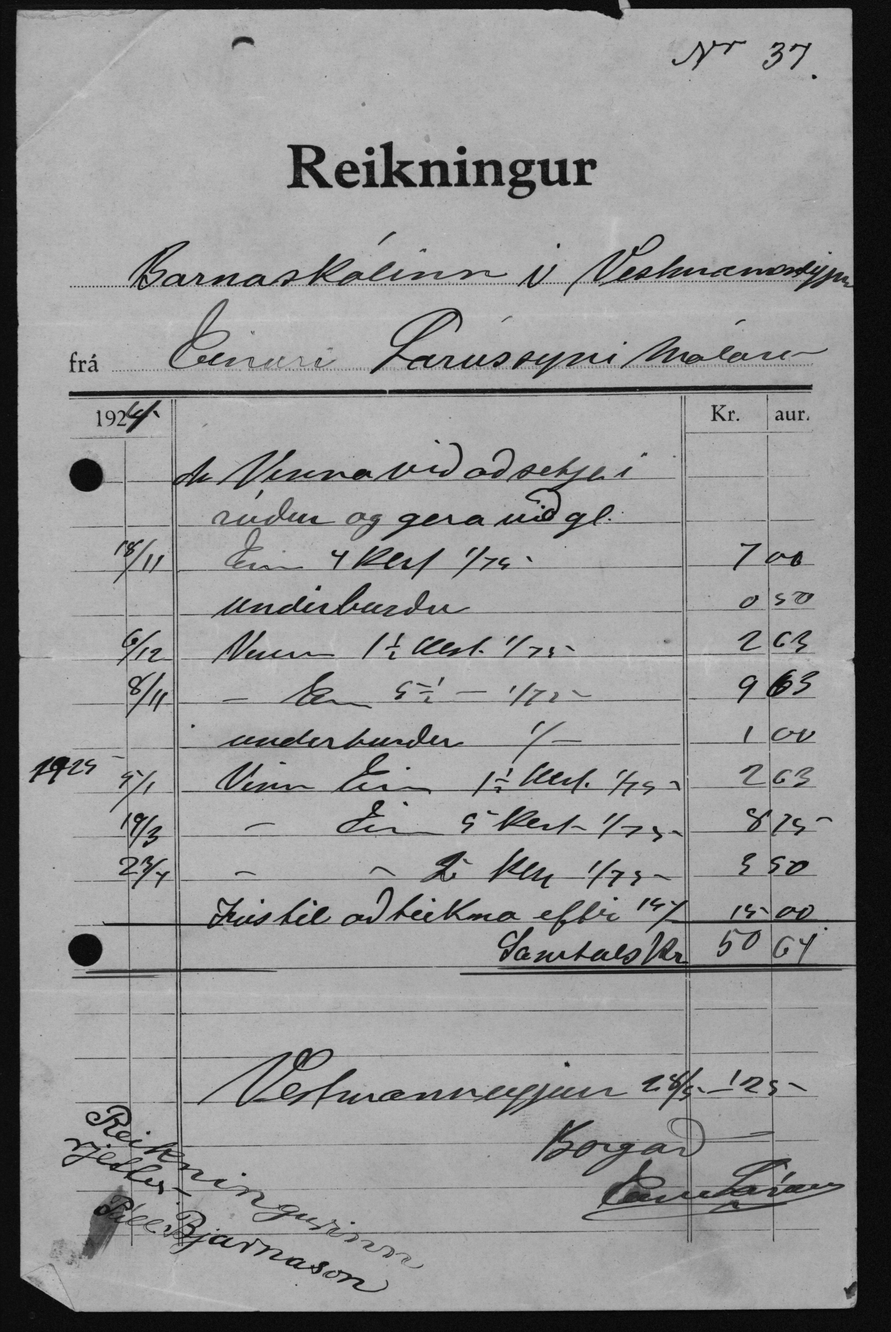 Nr 37.
Reikningur
Barnaskólinn í Vestmannaeyjum
frá Einari Lárussyni málara
1924 Kr. aur.
Vinna við að setja í
rúður og gera við gl.
18/11 Einar 4 klst 1/75 7 00
underburður 0 50
6/12 Vinna 1 1/2 klst. 1/75 2 63
8/11 - 5 1/2 - 1/75 9 63
underburður 1/- 1 00
1925
5/1 Vinn 1 1/2 klst. 1/75 2 63
19/3 - 5 klst 1/75 8 75
23/4 - - 2 1/75 3 50
til að teikna eftir 15 00
Samtals kr 50 64
Vestmannaeyjum 28/5 - 1925
Borgað
Einar Lárusson
Reikningurinn
rjettur
Páll Bjarnason